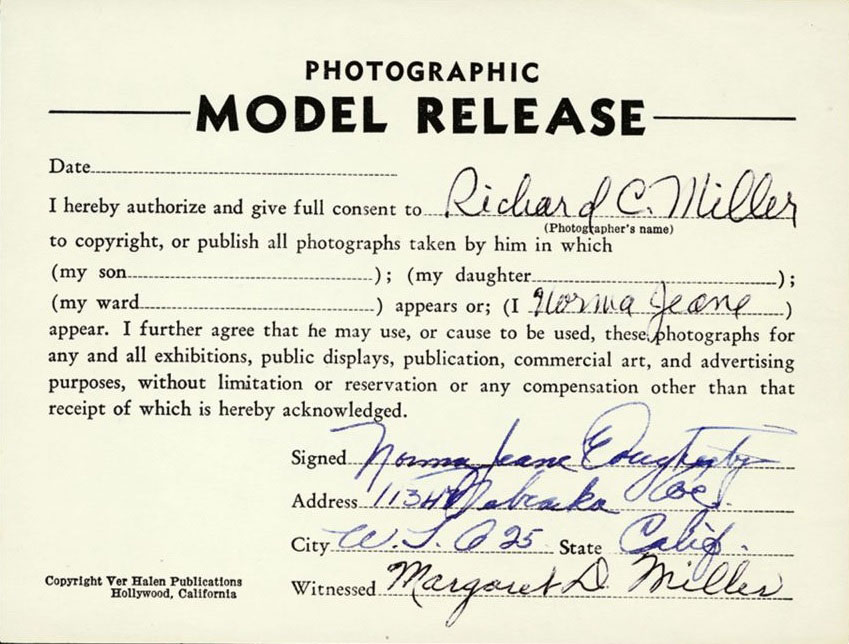 PHOTOGRAPHIC
MODEL RELEASE
Date
I hereby authorize and give full consent to Richard C. Miller
(Photographer's name)
to copyright, or publish all photographs taken by him in which
(my son ); (my daughter );
(my ward ) appears or; (I Norma Jeane )
appear. I further agree that he may use, or cause to be used, these photographs for
any and all exhibitions, public displays, publication, commercial art, and advertising
purposes, without limitation or reservation or any compensation other than that
receipt of which is hereby acknowledged.
Signed Norma Jeane Dougherty
Address Nebraska
City W. L. A 25 State Calif.
Witnessed Margaret D. Miller
Copyright Ver Halen Publications
Hollywood, California